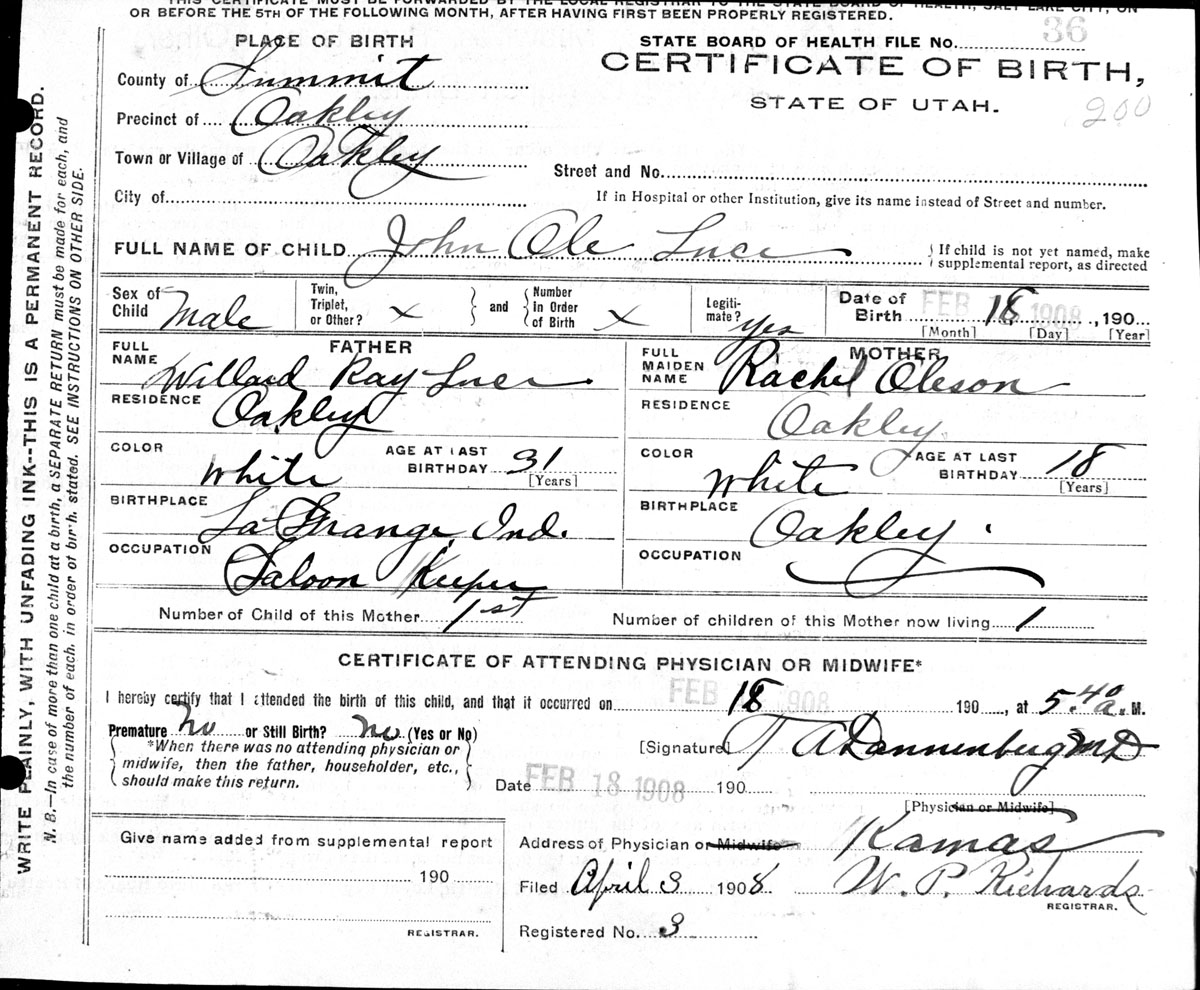 THIS CERTIFICATE MUST BE FORWARDED BY THE LOCAL REGISTRAR TO THE STATE BOARD OF HEALTH, SALT LAKE CITY, ON
OR BEFORE THE 5TH OF THE FOLLOWING MONTH, AFTER HAVING FIRST BEEN PROPERLY REGISTERED.
PLACE OF BIRTH
STATE BOARD OF HEALTH FILE No. 36
County of Summit
CERTIFICATE OF BIRTH,
STATE OF UTAH.
200
Precinct of Oakley
Town or Village of Oakley
Street and No.
City of
If in Hospital or other Institution, give its name instead of Street and number.
FULL NAME OF CHILD John Ole Luce
If child is not yet named, make
supplemental report, as directed
Sex of Child Male
Twin, Triplet, or Other? x
and
Number in Order of Birth x
Legitimate? yes
Date of Birth FEB 18 1908, 190
[Month] [Day] [Year]
FATHER
FULL NAME Willard Ray Luce
RESIDENCE Oakley
COLOR White
AGE AT LAST BIRTHDAY 31
[Years]
BIRTHPLACE La Grange, Ind.
OCCUPATION Saloon Keeper
MOTHER
FULL MAIDEN NAME Rachel Oleson
RESIDENCE Oakley
COLOR White
AGE AT LAST BIRTHDAY 18
[Years]
BIRTHPLACE Oakley.
OCCUPATION
Number of Child of this Mother 1st
Number of children of this Mother now living 1
CERTIFICATE OF ATTENDING PHYSICIAN OR MIDWIFE*
I hereby certify that I attended the birth of this child, and that it occurred on FEB 18 1908 190, at 5.40 a. M.
Premature no or Still Birth? no (Yes or No)
*When there was no attending physician or
midwife, then the father, householder, etc.,
should make this return.
[Signature] T A Dannenberg MD
Date FEB 18 1908 190
[Physician or Midwife]
Give name added from supplemental report
190
REGISTRAR.
Address of Physician or Midwife Kamas
Filed April 3 1908
W. P. Richards
REGISTRAR.
Registered No. 3
WRITE PLAINLY, WITH UNFADING INK--THIS IS A PERMANENT RECORD.
N. B.—In case of more than one child at a birth, a SEPARATE RETURN must be made for each, and
the number of each, in order of birth, stated. SEE INSTRUCTIONS ON OTHER SIDE.